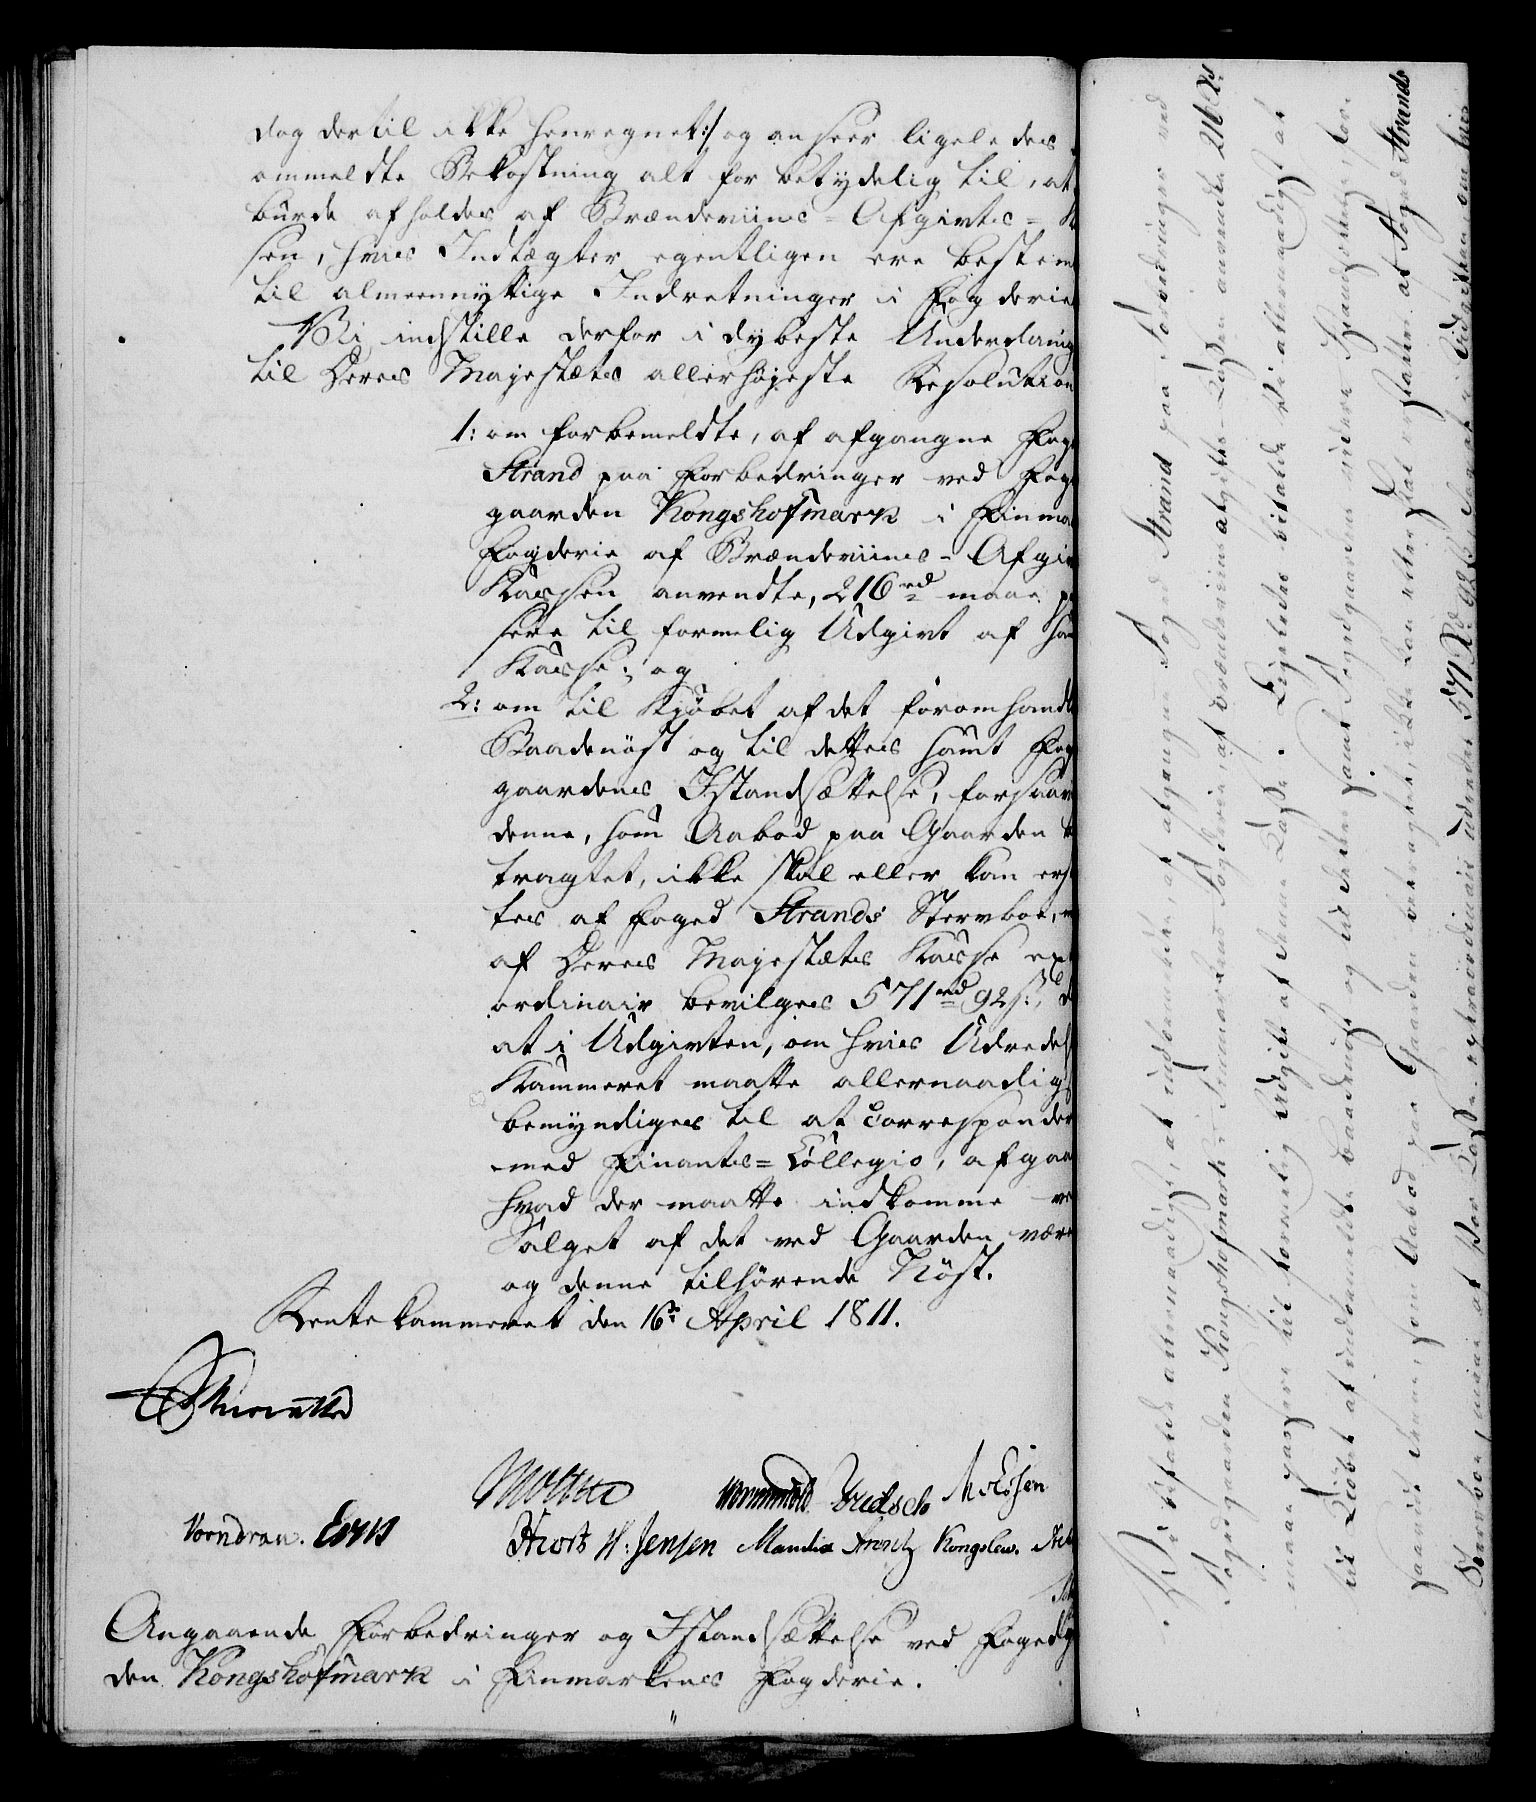 dog dertil ikke henregnet :/ og anseer ligeledes
ommeldte Bekostning alt for betydelig til, at
burde afholdes af Brændeviins-Afgivts-
sen, hvis Indtægter egentligen ere bestem
til almeennyttige Indretninger i Fogderie
Vi indstille derfor i dybeste Underdanig
til Deres Majestæts allerhøjeste Resolution
1: om forbemeldte, af afgangne Fog
Strand paa Forbedringer ved Fog
gaarden Kongshofmark i Finma
Fogderie af Brændeviins-Afgiv
Kassen anvendte, 216 rd maae pa
sere til formelig Udgivt af sam
Kasse; og
2: om til Kjøbet af det foromhandl
Baadenøst og til dettes samt Fog
gaardens Istandsættelse, forsaav
denne, som Aabod paa Gaarden b
tragtet, ikke skal eller kan erst
tes af Foged Strands Stervboe, m
af Deres Majestæts Kasse ext
ordinair bevilges 571 rd 92 s:, d
at i Udgivten, om hvis Udredels
Kammeret maatte allernaadigs
bemyndiges til at correspondere
med Finants-Collegio, afgaae
hvad der maatte indkomme ve
Salget af det ved Gaarden være
og denne tilhørende Nøst.
Rentekammeret den 16de April 1811.
Moltke
Wormskiold
M: Essen
Vorndran.
H: Jensen Manthe
Kongslew.
Angaaende Forbedringer og Istandsættelse ved Fogedg
den Kongshofmark i Finmarkens Fogderie.
Vi bifalde allernaadigst, at indbemeldte, af afgangne Foged Strand paa Forbedringer ved
Fogedgaarden Kongshofmark i Finmarkens Fogderie, af Brændeviinsafgifts-Cassen anvendte 216 Rd
maae passere til formelig Udgift af denne Casse. Ligeledes bifalde Vi allernaadigst at
til Kiøbet af indbemeldte Baadenøst og til dettes samt Fogedgaardens videre Istandsættelse, for-
saavidt denne, som Aabod paa Gaarden betragtet, ikke kan eller skal erstattes af Foged Strands
Stervboe, maae af Vor Casse extraordinair udredes 571 Rd 92 s, dog at i Udgiften om hvis